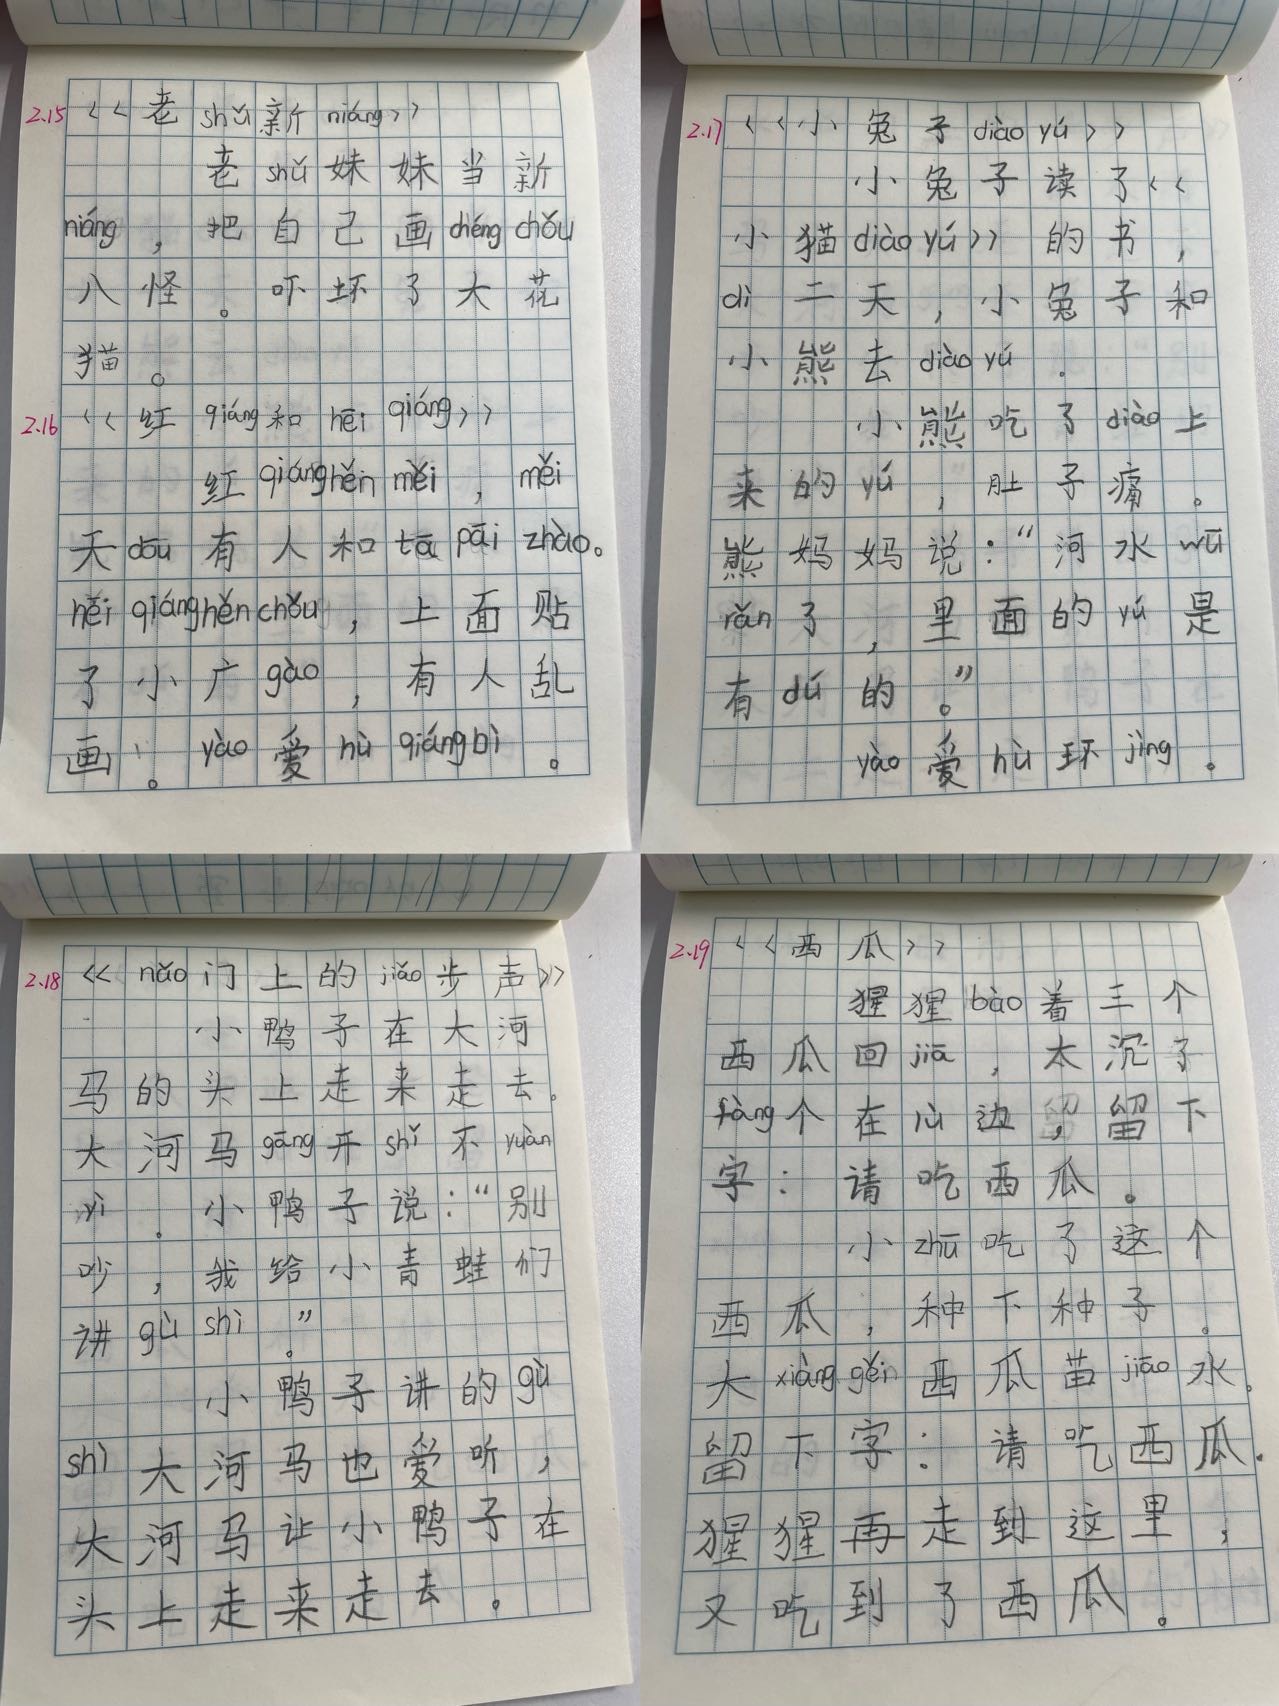 2.15 《老shǔ新niáng》
老shǔ妹妹当新
niáng，把自己画chéng chǒu
八怪。吓坏了大花
猫。
2.16 《红qiáng和hēi qiáng》
红qiáng hěn měi，měi
天dōu有人和tā pāi zhào。
hēi qiáng hěn chǒu，上面贴
了小广gào，有人乱
画。yào爱hù qiáng bì。
2.17 《小兔子diào yú》
小兔子读了《
小猫diào yú》的书，
dì二天，小兔子和
小熊去diào yú.
小熊吃了diào上
来的yú，肚子痛。
熊妈妈说：“河水wū
rǎn了，里面的yú是
有dú的。”
yào爱hù环jìng。
2.18 《nǎo门上的jiǎo步声》
小鸭子在大河
马的头上走来走去。
大河马gāng开shǐ不yuàn
yì。小鸭子说：“别
吵，我给小青蛙们
讲gù shì。”
小鸭子讲的gù
shì大河马也爱听，
大河马让小鸭子在
头上走来走去。
2.19 《西瓜》
猩猩bào着三个
西瓜回jiā，太沉了
fàng个在lù边，留下
字：请吃西瓜。
小zhū吃了这个
西瓜，种下种子。
大xiàng gěi西瓜苗jiāo水。
留下字：请吃西瓜.
猩猩再走到这里，
又吃到了西瓜。